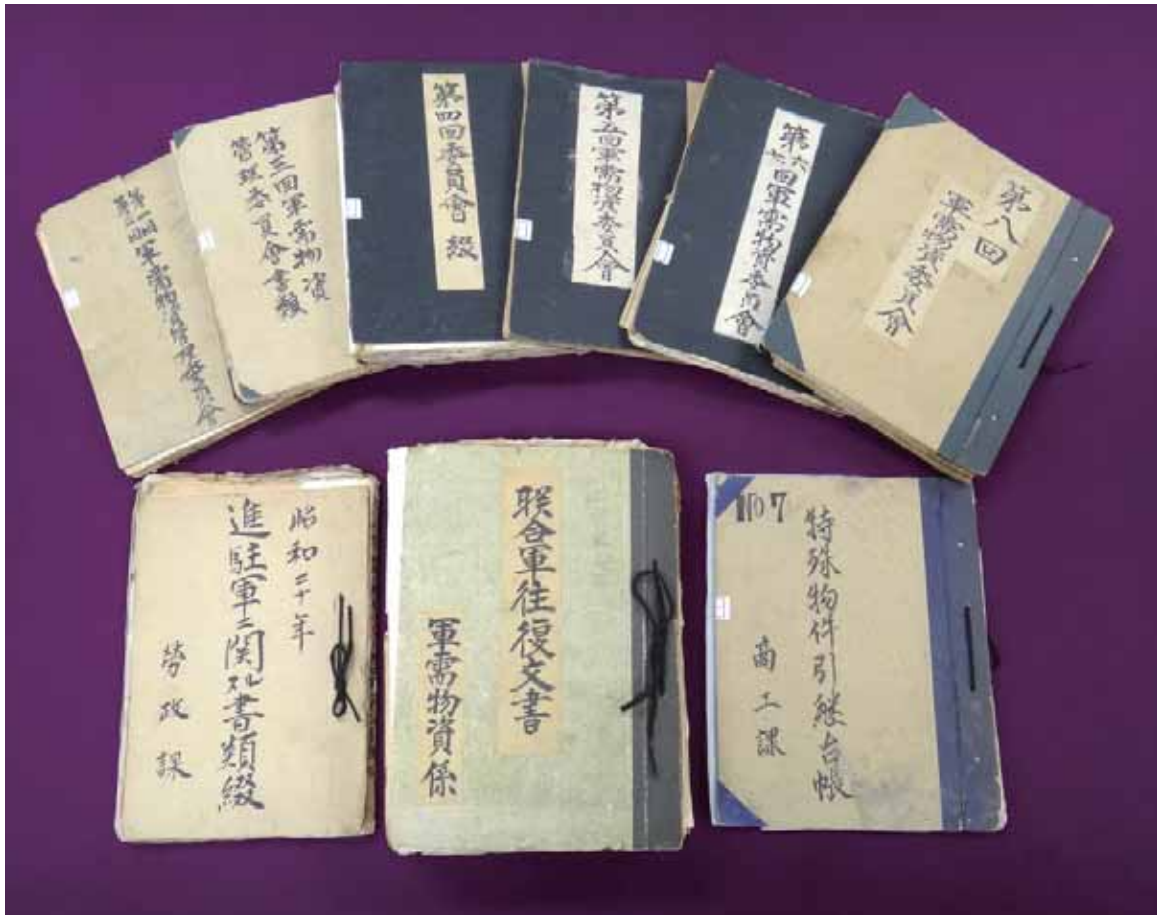 第一回
第二回
軍需物資管理委員會
第三回軍需物資
管理委員會書類
第四回委員會綴
第五回軍需物資委員會
第六回
七
軍需物資委員會
第八回
軍需物資委員會
昭和二十年
進駐軍ニ関スル書類綴
勞政課
聯合軍往復文書
軍需物資係
NO7
特殊物件引継台帳
商工課